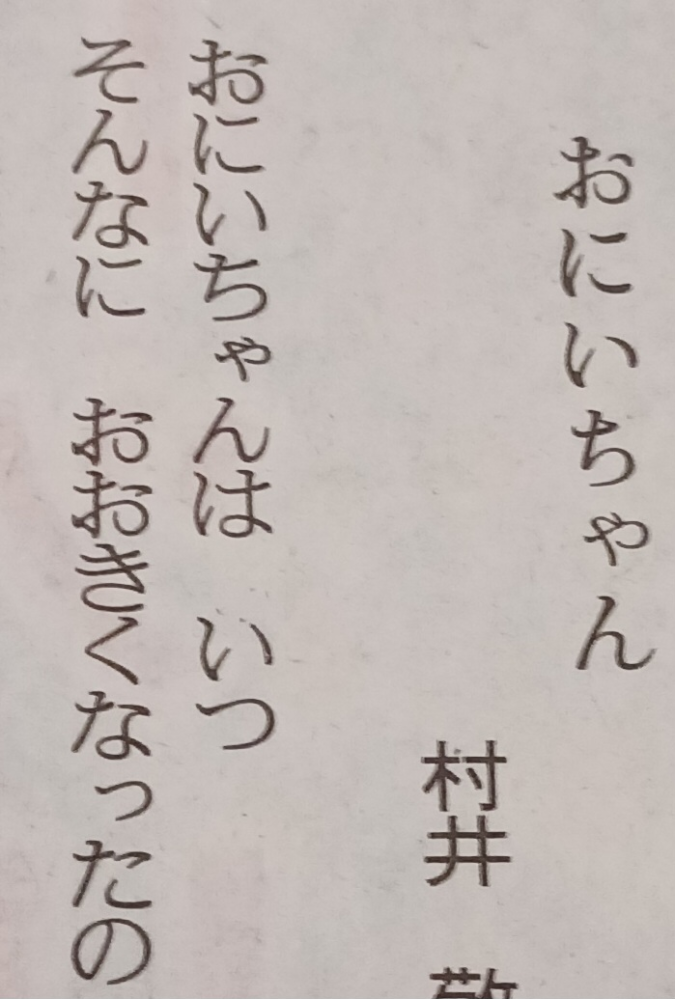 おにいちゃん
村井
おにいちゃんは　いつ
そんなに　おおきくなったの